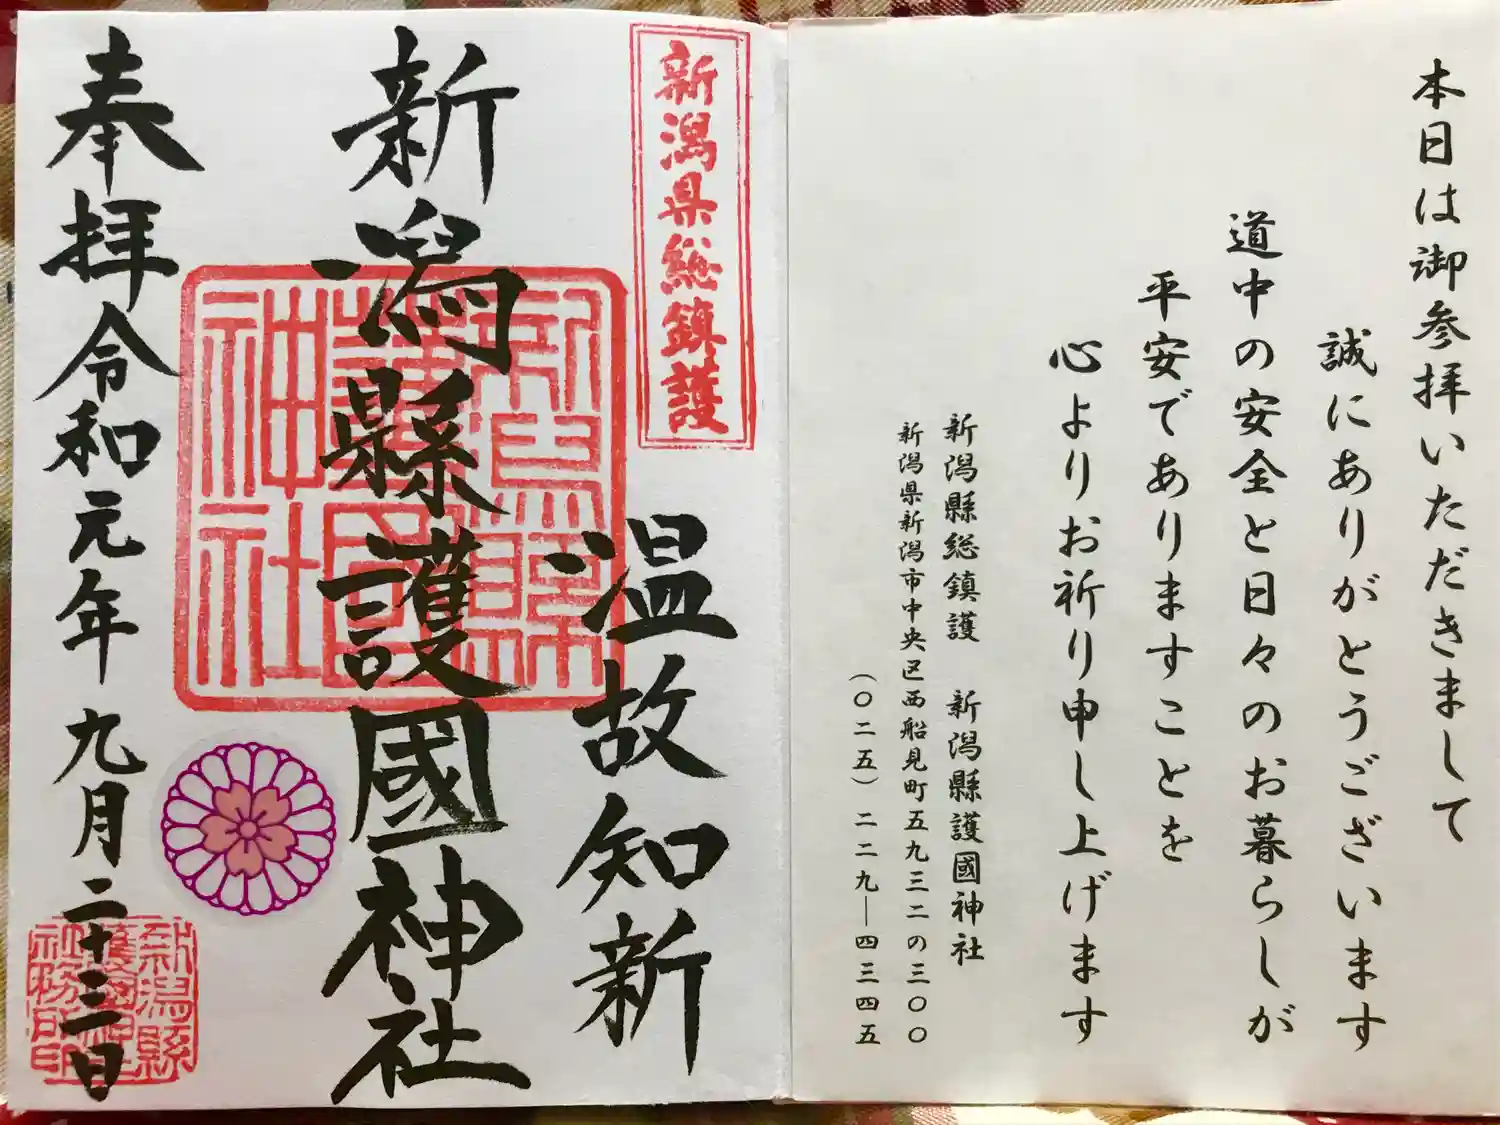 本日は御参拝いただきまして
誠にありがとうございます
道中の安全と日々のお暮らしが
平安でありますことを
心よりお祈り申し上げます
新潟縣総鎮護 新潟縣護國神社
新潟県新潟市中央区西船見町五九三二の三〇〇
（〇二五）二二九―四三四五
新潟県総鎮護
温故知新
新潟縣護國神社
新潟縣
護國
神社
奉拝令和元年九月二十三日
新潟縣
護國神社
社務所印